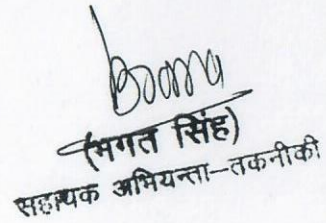 (भगत सिंह)
सहायक अभियन्ता–तकनीकी